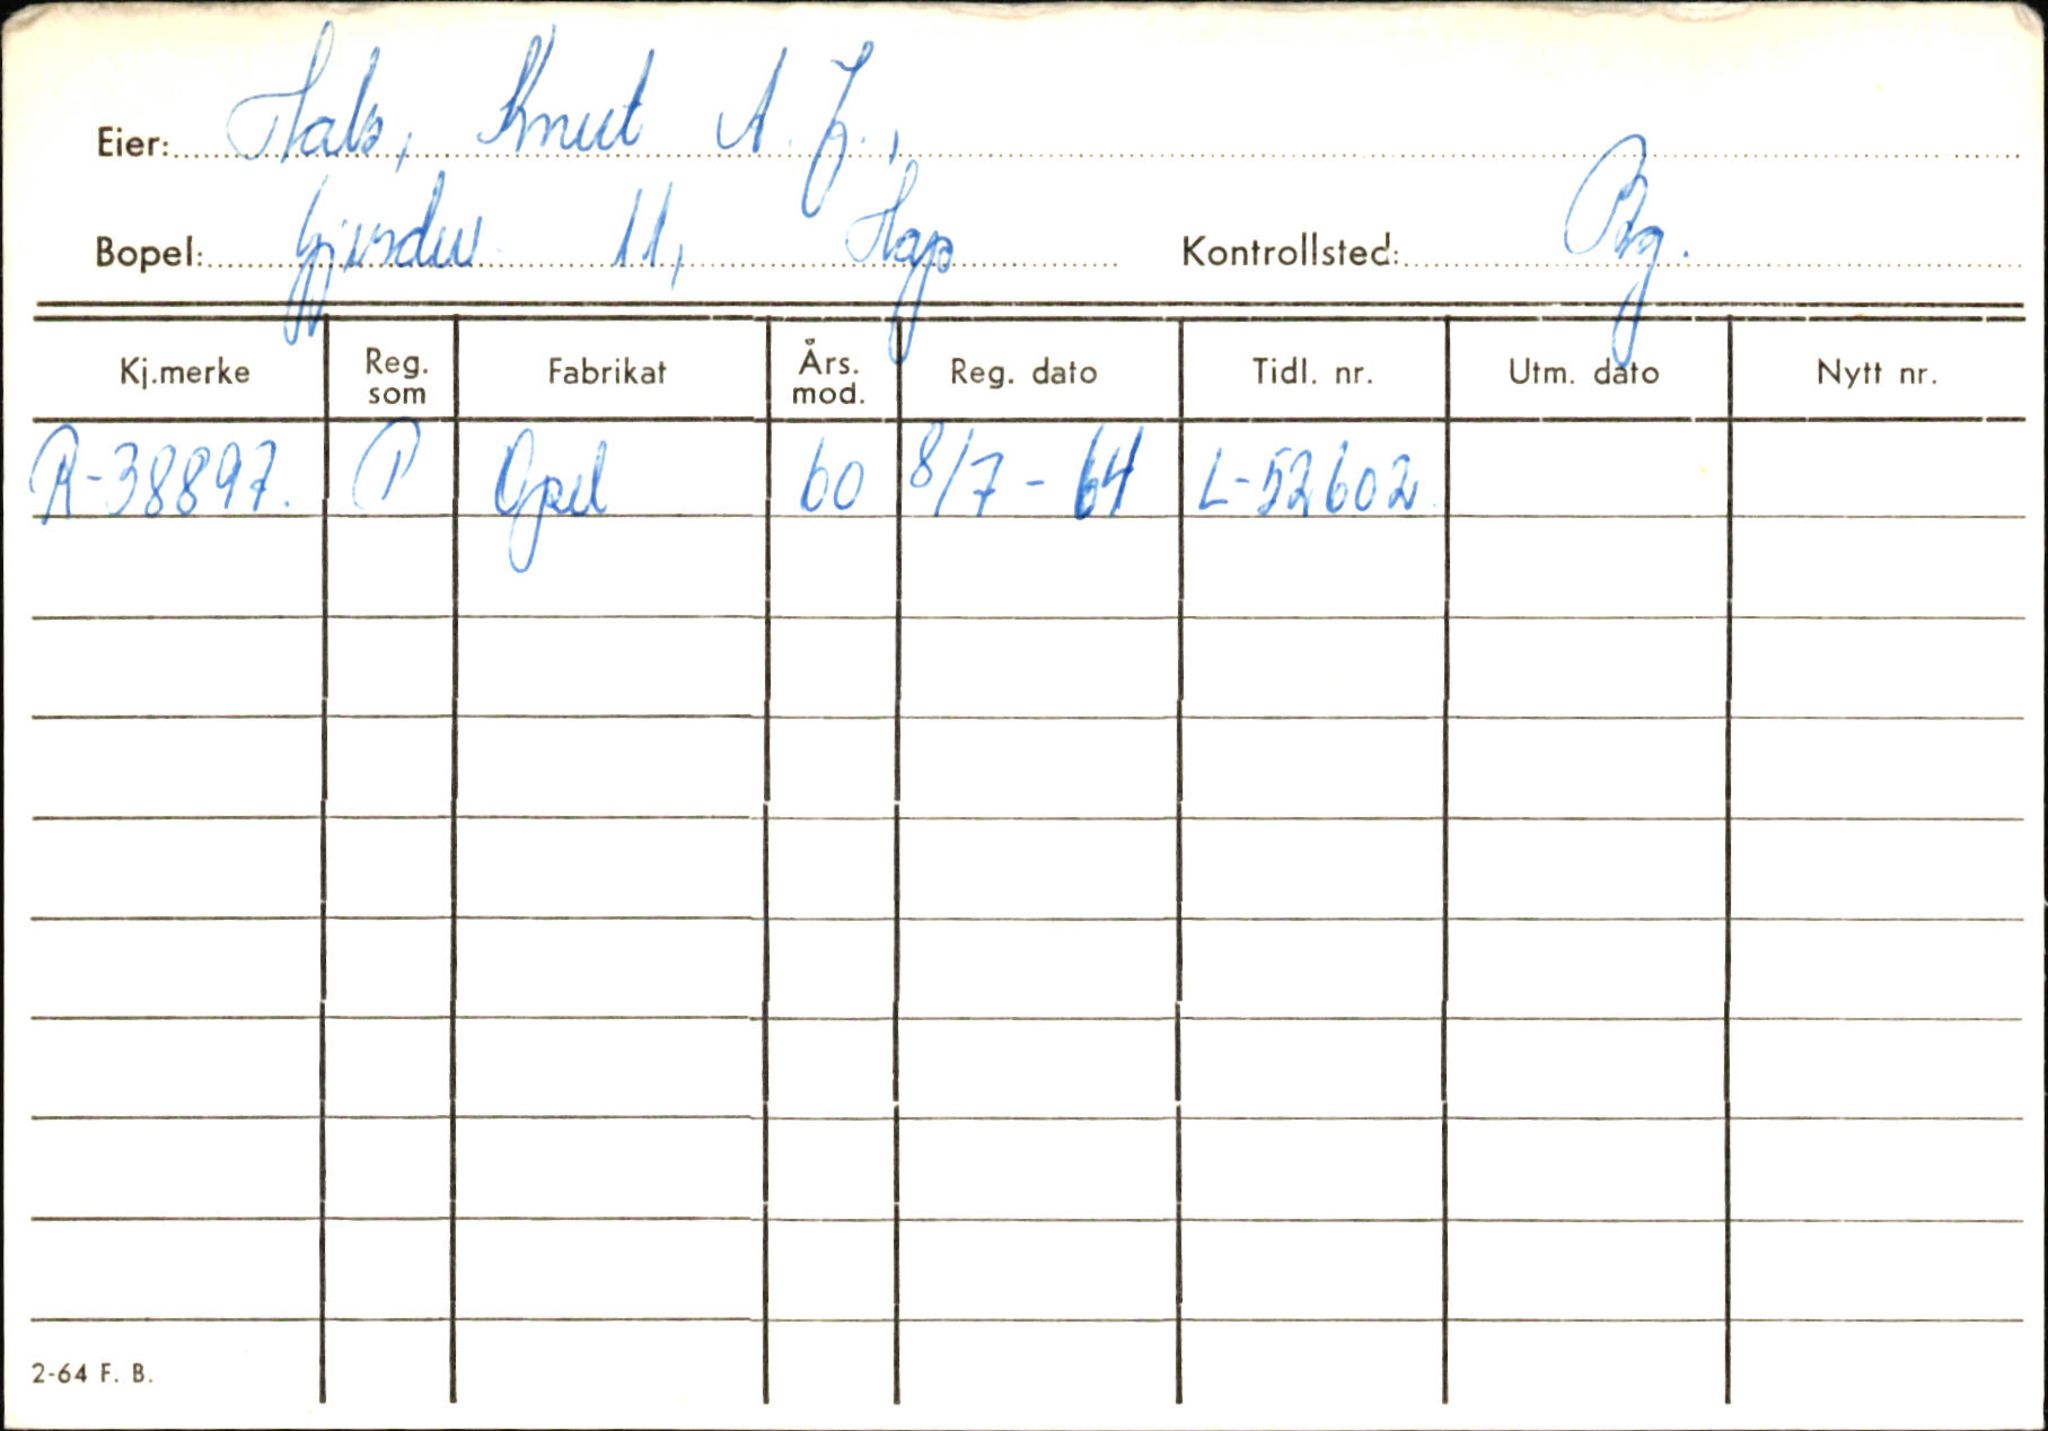 Eier: Hals, Knut A. J.,
Bopel: 11, Hop Kontrollsted: Brg.
Kj.merke Reg. som Fabrikat Års. mod. Reg. dato Tidl. nr. Utm. dato Nytt nr.
R-38897. P Opel 60 8/7-64 L-52602
2-64 F. B.